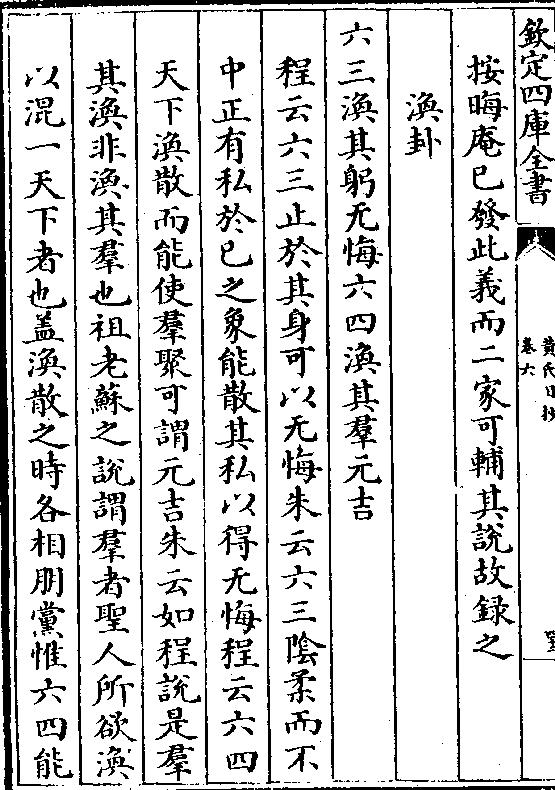 欽定四庫全書
黄氏日抄
卷六
按晦庵已發此義而二家可輔其說故録之
渙卦
六三渙其躬无悔六四渙其羣元吉
程云六三止於其身可以无悔朱云六三陰柔而不
中正有私於已之象能散其私以得无悔程云六四
天下渙散而能使羣聚可謂元吉朱云如程說是羣
其渙非渙其羣也祖老蘇之說謂羣者聖人所欲渙
以混一天下者也盖渙散之時各相朋黨惟六四能